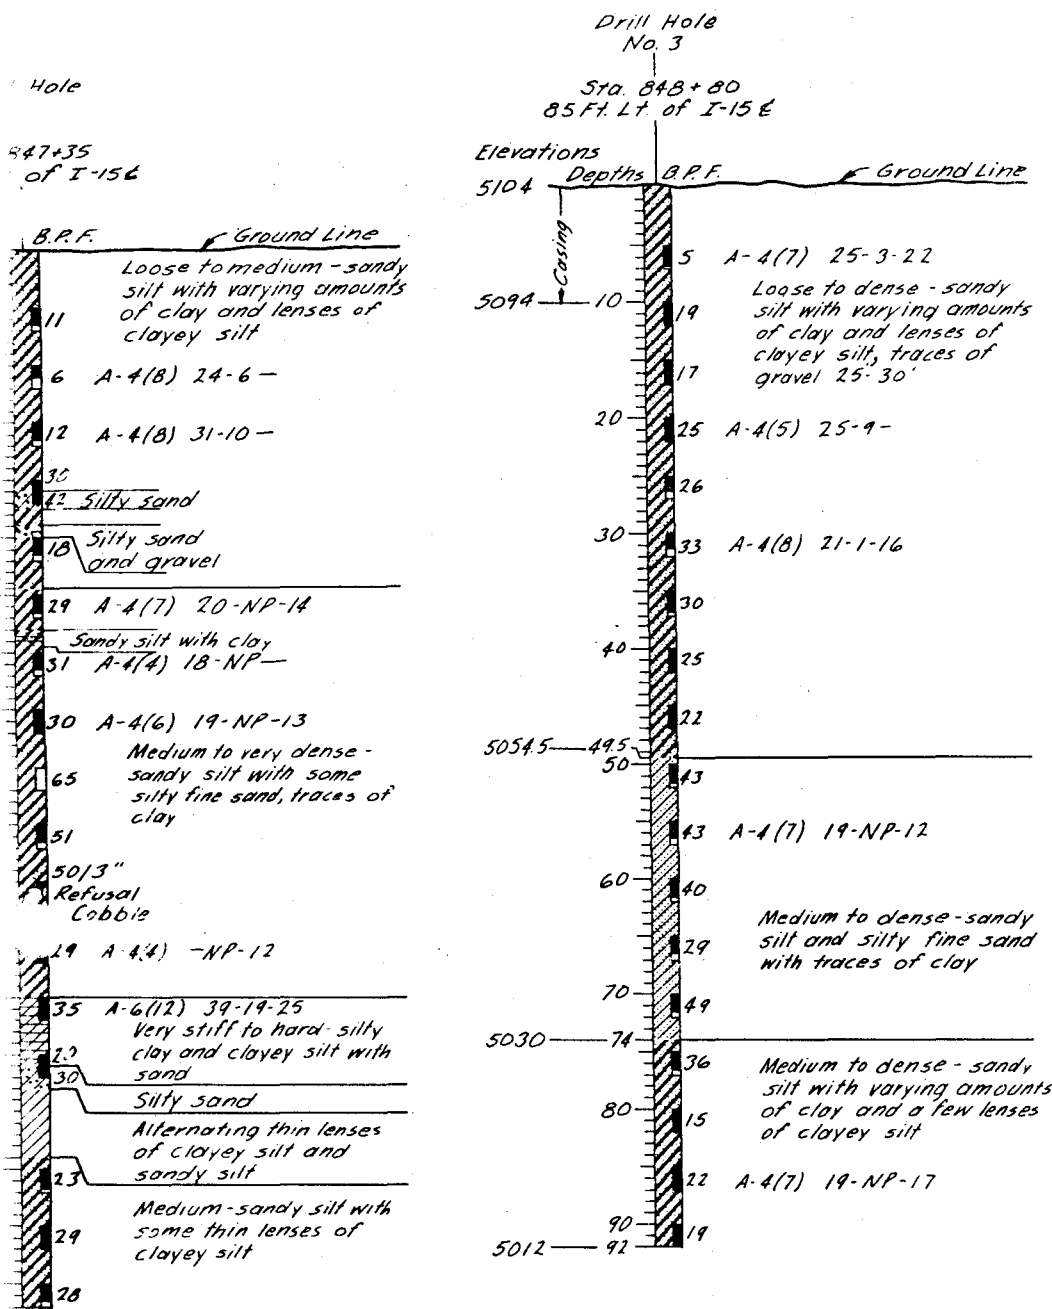 Hole
847+35
of I-15 ℄
B.P.F.
Ground Line
Loose to medium - sandy
silt with varying amounts
of clay and lenses of
clayey silt
11
6 A-4(8) 24-6 —
12 A-4(8) 31-10 —
42 Silty sand
18 Silty sand
and gravel
29 A-4(7) 20-NP-14
Sandy silt with clay
31 A-4(4) 18-NP —
30 A-4(6) 19-NP-13
Medium to very dense -
sandy silt with some
silty fine sand, traces of
clay
65
51
50/3"
Refusal
Cobble
29 A-4(4) -NP-12
35 A-6(12) 39-19-25
Very stiff to hard - silty
clay and clayey silt with
sand
30
Silty sand
Alternating thin lenses
of clayey silt and
sandy silt
23
Medium - sandy silt with
some thin lenses of
clayey silt
29
28
Drill Hole
No. 3
Sta. 848+80
85 Ft. Lt. of I-15 ℄
Elevations
Depths B.P.F.
Ground Line
5104
Casing
5 A-4(7) 25-3-22
5094 10
19
Loose to dense - sandy
silt with varying amounts
of clay and lenses of
clayey silt, traces of
gravel 25-30'
17
20
25 A-4(5) 25-9-
26
30
33 A-4(8) 21-1-16
30
40
25
22
5054.5 49.5
50
43
43 A-4(7) 19-NP-12
60
40
Medium to dense - sandy
silt and silty fine sand
with traces of clay
29
70
49
5030 74
36
Medium to dense - sandy
silt with varying amounts
of clay and a few lenses
of clayey silt
80
15
22 A-4(7) 19-NP-17
90
19
5012 92